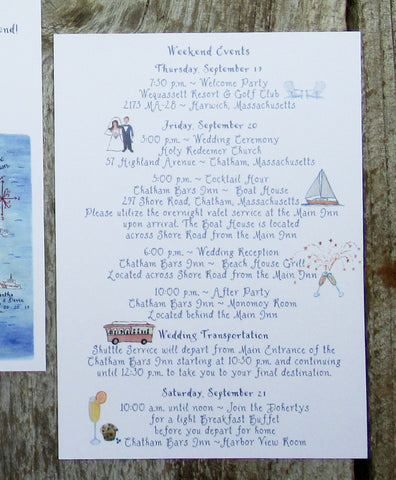 end!
Weekend Events
Thursday, September 19
7:30 p.m. ~ Welcome Party
Wequassett Resort & Golf Club
2173 MA-28 ~ Harwich, Massachusetts
Friday, September 20
3:00 p.m. ~ Wedding Ceremony
Holy Redeemer Church
57 Highland Avenue ~ Chatham, Massachusetts
5:00 p.m. ~ Cocktail Hour
Chatham Bars Inn ~ Boat House
297 Shore Road, Chatham, Massachusetts
Please utilize the overnight valet service at the Main Inn
upon arrival. The Boat House is located
across Shore Road from the Main Inn
6:00 p.m. ~ Wedding Reception
Chatham Bars Inn ~ Beach House Grill
Located across Shore Road from the Main Inn
10:00 p.m. ~ After Party
Chatham Bars Inn ~ Monomoy Room
Located behind the Main Inn
Wedding Transportation
Shuttle Service will depart from Main Entrance of the
Chatham Bars Inn starting at 10:30 p.m. and continuing
until 12:30 p.m. to take you to your final destination.
Saturday, September 21
10:00 a.m. until noon ~ Join the Dohertys
for a light Breakfast Buffet
before you depart for home
Chatham Bars Inn ~Harbor View Room